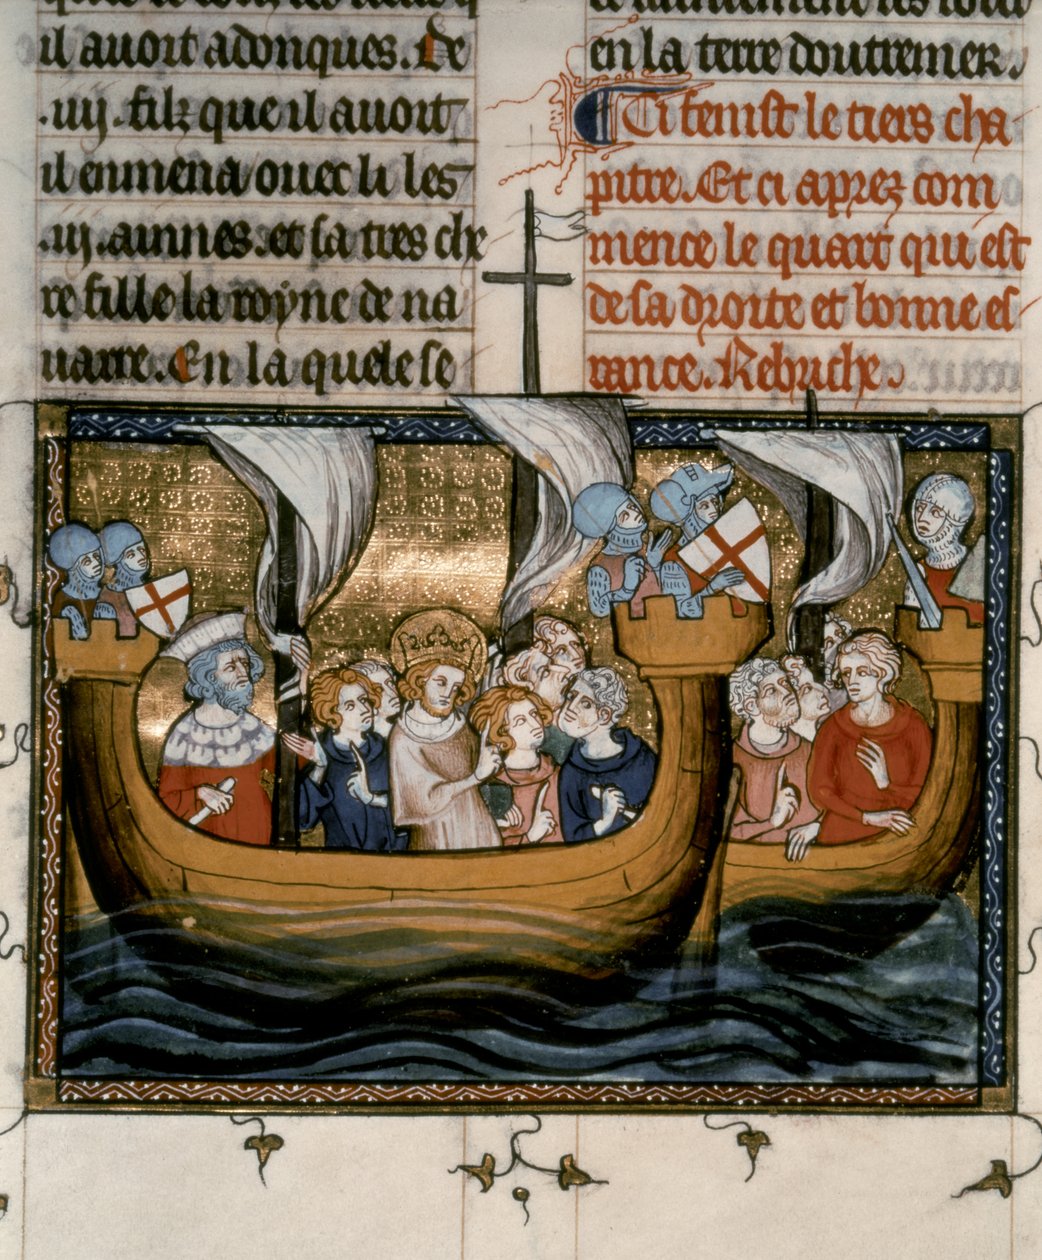 il auoit adonques. De
.iiij. filz que il auoit
il enmena ouec li les
.iij. ainnes. et sa tres che
re fille la royne de na
uarre. En la quele se
en la terre doutremer.
Ci fenist le tiers cha
pitre. Et ci aprez com
mence le quart qui est
de sa droite et bonne es
rance. Rebruche.